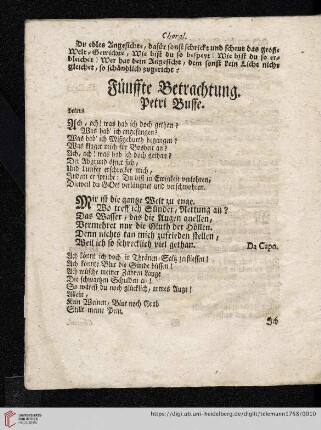 Choral.
Du edles Angesichte, dafür sonst schrickt und scheut das große
Welt-Gewichte, Wie bist du so bespeyt! Wie bist du so er-
bleichet! Wer hat dein Angesicht, dem sonst kein Licht nicht
gleichet, so schändlich zugericht!
Fünffte Betrachtung.
Petri Busse.
Petrus
Ach, ach! was hab ich doch gethan?
Was hab' ich angefangen?
Was hab' ich Mißgebuhrt begangen?
Was klaget mich für Bosheit an?
Ach, ach! was hab ich doch gethan?
Der Abgrund öfnet sich,
Und
Indem er spricht: Du bist in Ewigkeit verlohren,
Dieweil du GOtt verläugnet und verschwohren.
Mir ist die gantze Welt zu enge.
Wo treff ich Sünder, Rettung an?
Das Wasser, das die Augen quellen,
Vermehret nur die Gluth der Höllen.
Denn nichts kan mich zufrieden stellen,
Weil ich so schrecklich viel gethan. Da Capo.
Ach könt ich doch in Thränen-Saltz zerfliessen!
Ach könnte Blut die Sünde büssen!
Ach wüsche meiner Zähren Lauge
Die schwartzen Schulden ab!
So wärest du noch glücklich, armes Auge!
Allein,
Kein Weinen, Blut noch Grab
Stillt meine Pein.
https://digi.ub.uni-heidelberg.de/diglit/telemann1758/0010
UNIVERSITÄTS-
BIBLIOTHEK
HEIDELBERG